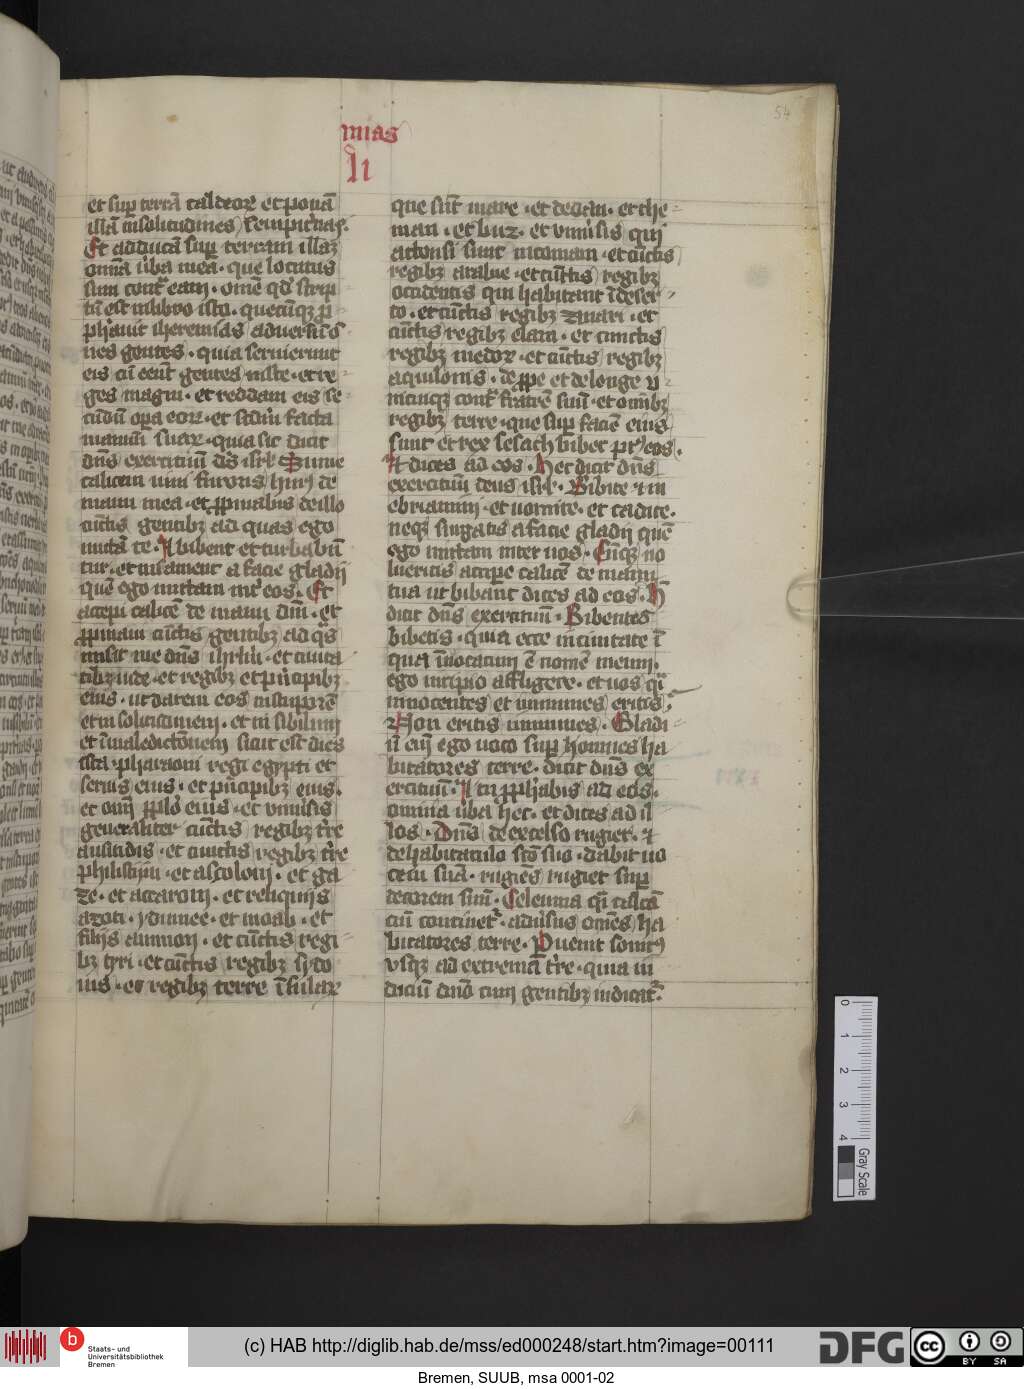 54
mias
li
et sup̄ terrā caldeoꝝ et ponā
illā in solitudines sempit̄nas.
Et adducā sup̄ terram illaꝫ
omīa ūba mea · que locutus
sum cont̄ eam · om̄e qd̄ scrip
tū est in libro isto · quecūqꝫ ꝓ
phauit iheremias adversū o
nes gentes · quia servierunt
eis cū eēnt gentes mlte · et re
ges magni · et reddam eis se
cūdū opa eoꝝ · et scdm̄ facta
manuū suaꝝ · quia sic dicit
dn̄s exercituū ds̄ isrl̄ Sume
calicem vini furoris huiꝯ de
manu mea · et ꝓpinabis de illo
cūctis gentibꝫ ad quas ego
mittā te · Et bibent et turbabūt
tur · et insanient a facie gladij
quē ego mittam int̄ eos · Et
accepi calicē de manu dn̄i · et
ꝓpinavi cūctis gentibꝫ ad qͣs
misit me dn̄s ihrlm̄ · et civita
tibꝫ iude · et regibꝫ et p̄ncipibꝫ
eius · ut darem eos in stuporē
et in solitudinem · et in sibilum
et ī maledictōnem sicut est dies
ista · pharaoni regi egypti et
servis eius · et p̄ncipibꝫ eius ·
et om̄i pplo eius · et vniūsis
generaliter cūctis regibꝫ t̄re
ausitidis · et cūctis regibꝫ t̄re
philistijm · et ascoloni · et ga
ze · et accaroni · et reliquijs
azoti · ydumee · et moab · et
filijs ammon · et cūctis regi
bꝫ tyri · et cūctis regibꝫ sydo
nis · et regibꝫ terre īsulaꝝ
que sūt mare · et dedan · et the
man · et buz · et vniūsis qui
attonsi sunt in comam · et cūctis
regibꝫ arabie · et cūctis regibꝫ
occidentis qui habitant ī deser
to · et cūctis regibꝫ zmari · et
cūctis regibꝫ elam · et cunctis
regibꝫ medoꝝ · et cūctis regibꝫ
aquilonis · de ꝓpe et de longe v
nicuiqꝫ cont̄ fratrē suū · et omībꝫ
regibꝫ terre · que sup̄ faciē eius
sunt et rex sesach bibet pꝰ eos.
Et dices ad eos · Hec dicit dn̄s
exercituū deus isrl̄ · Bibite ⁊ in
ebriamini · et vomite · et cadite.
neqꝫ surgatis a facie gladij quē
ego mittam inter vos · Cūqꝫ no
lueritis accipe calicē de manu
tua ut bibant dices ad eos · H̄
dicit dn̄s exercituū · Bibentes
bibetis · quia ecce in civitate ī
qua īvocatum ē nomē meum.
ego incipio affligere · et vos qͣi
innocentes et immunes eritis.
Non eritis immunes · Gladi
ū em̄ ego voco sup̄ homnes ha
bitatores terre · dicit dn̄s ex
ercituū · Et tu ꝓphabis ad eos ·
omnia ūba hec · et dices ad il
los · Dn̄s de excelso rugiet · ⁊
de habitaculo scō suo · dabit vo
cem suā · rugiēs rugiet sup̄
decorem suū · Celeuma qͣi calcā
ciū concinet̄ · adūsus omēs ha
bitatores terre · Puenit sonitꝰ
vsqꝫ ad extremā t̄re · quia iu
diciū dn̄o cum gentibꝫ iudicat̄.
0
1
2
3
4
Gray Scale
b Staats- und
Universitätsbibliothek
Bremen
(c) HAB http://diglib.hab.de/mss/ed000248/start.htm?image=00111
DFG
cc BY SA
Bremen, SUUB, msa 0001-02